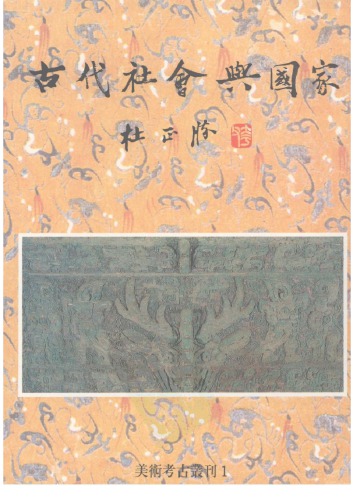 古代社會與國家
杜正勝
美術考古叢刊1